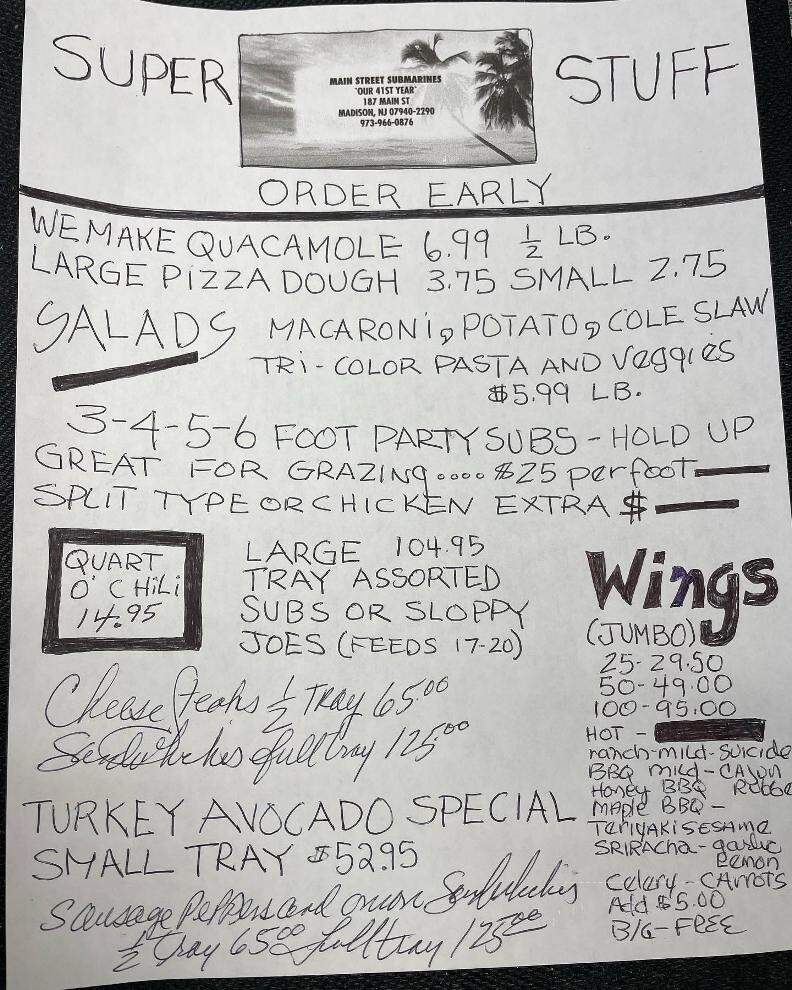 SUPER STUFF
MAIN STREET SUBMARINES
"OUR 41ST YEAR"
187 MAIN ST
MADISON, NJ 07940-2290
973-966-0876
ORDER EARLY
WE MAKE QUACAMOLE 6.99 1/2 LB.
LARGE PIZZA DOUGH 3.75 SMALL 2.75
SALADS MACARONI, POTATO, COLE SLAW
TRI-COLOR PASTA AND Veggies
$5.99 LB.
3-4-5-6 FOOT PARTY SUBS - HOLD UP
GREAT FOR GRAZING.... $25 per foot
SPLIT TYPE OR CHICKEN EXTRA $
QUART
O' CHiLi
14.95
LARGE 104.95
TRAY ASSORTED
SUBS OR SLOPPY
JOES (FEEDS 17-20)
Cheese Steaks 1/2 Tray 65.00
Sandwhiches full tray 125.00
TURKEY AVOCADO SPECIAL
SMALL TRAY $52.95
Sausage Peppers and onion Sandwhiches
1/2 Tray 65.00 full tray 125.00
Wings
(JUMBO)
25-29.50
50-49.00
100-95.00
HOT -
ranch-mild-Suicide
BBQ mild-CAJun
Honey BBQ
MAple BBQ -
TeriyAKi SESAme
SRIRAcha-garlic
Lemon
Celery-CArrots
Add $5.00
B/C-FREE